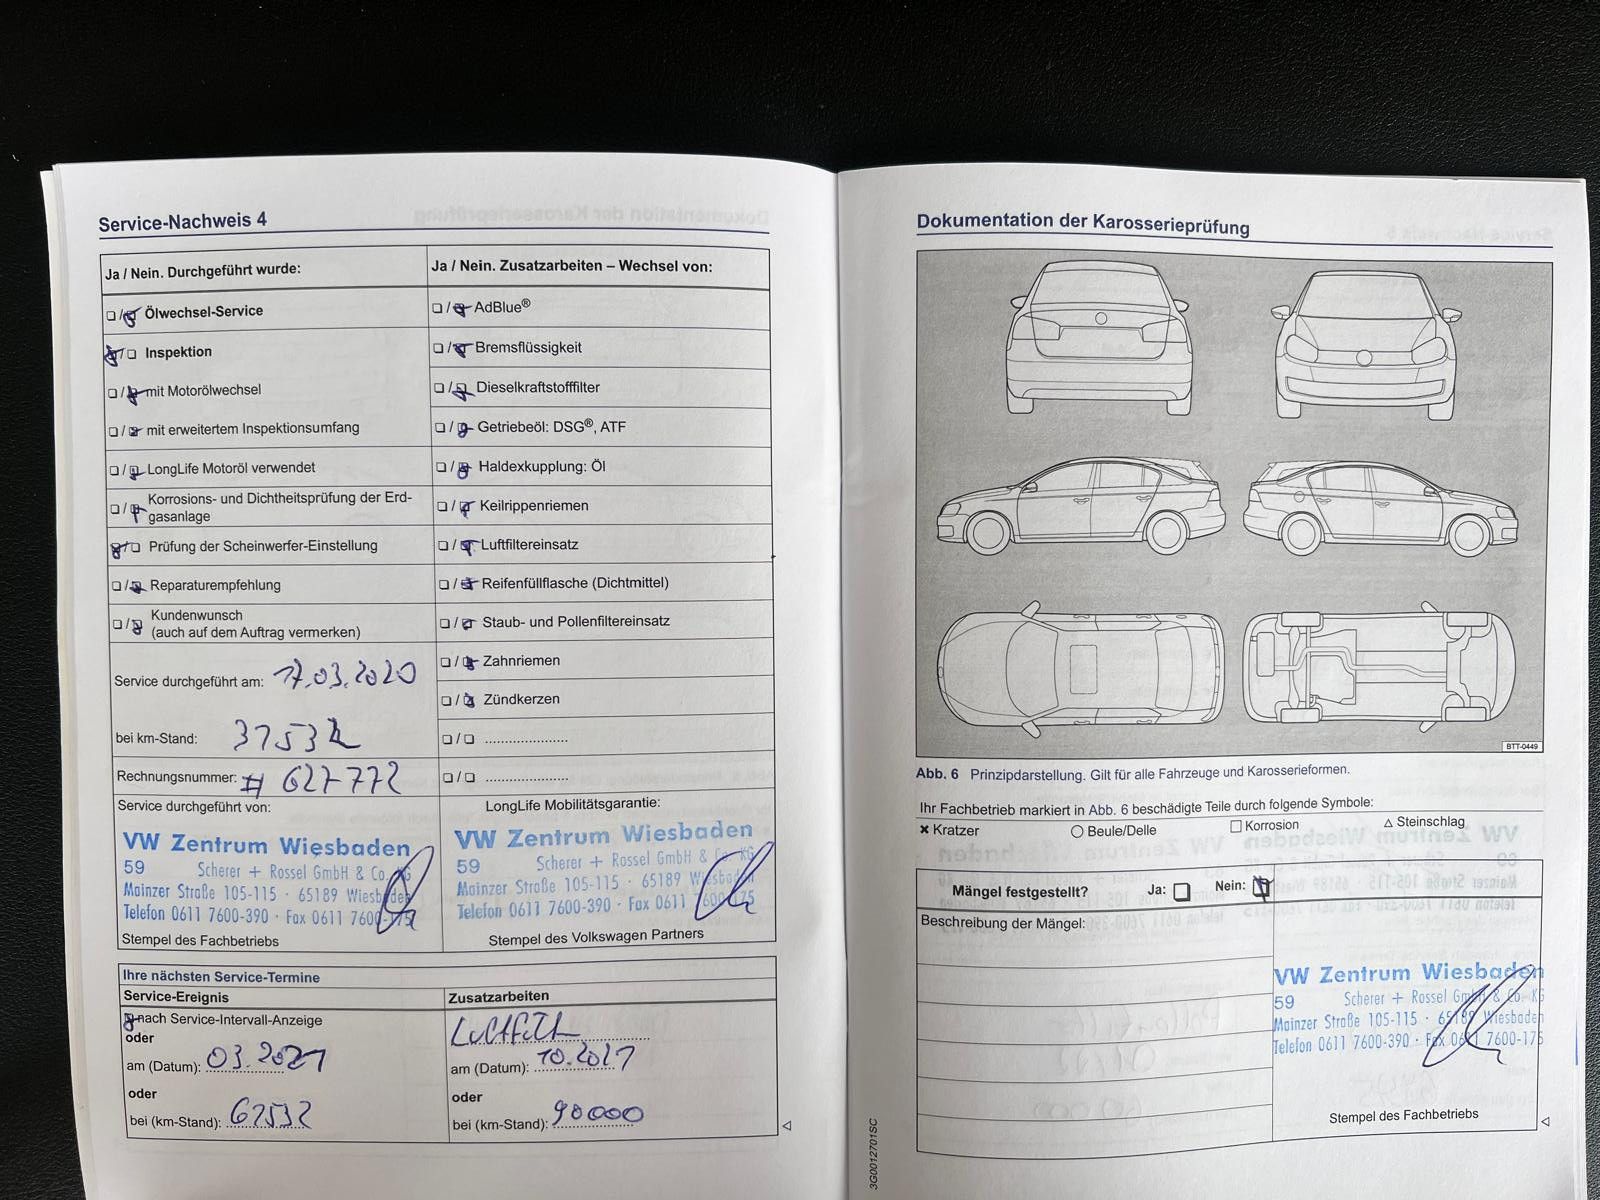 Service-Nachweis 4
Ja / Nein. Durchgeführt wurde:
❏ / ❏ Ölwechsel-Service
❏ / ❏ Inspektion
❏ / ❏ mit Motorölwechsel
❏ / ❏ mit erweitertem Inspektionsumfang
❏ / ❏ LongLife Motoröl verwendet
❏ / ❏ Korrosions- und Dichtheitsprüfung der Erd-
gasanlage
❏ / ❏ Prüfung der Scheinwerfer-Einstellung
❏ / ❏ Reparaturempfehlung
❏ / ❏ Kundenwunsch
(auch auf dem Auftrag vermerken)
Service durchgeführt am: 17.03.2020
bei km-Stand: 37532
Rechnungsnummer: # 627772
Ja / Nein. Zusatzarbeiten – Wechsel von:
❏ / ❏ AdBlue®
❏ / ❏ Bremsflüssigkeit
❏ / ❏ Dieselkraftstofffilter
❏ / ❏ Getriebeöl: DSG®, ATF
❏ / ❏ Haldexkupplung: Öl
❏ / ❏ Keilrippenriemen
❏ / ❏ Luftfiltereinsatz
❏ / ❏ Reifenfüllflasche (Dichtmittel)
❏ / ❏ Staub- und Pollenfiltereinsatz
❏ / ❏ Zahnriemen
❏ / ❏ Zündkerzen
❏ / ❏ ......................
❏ / ❏ ......................
Service durchgeführt von:
VW Zentrum Wiesbaden
59 Scherer + Rossel GmbH & Co. KG
Mainzer Straße 105-115 · 65189 Wiesbaden
Telefon 0611 7600-390 · Fax 0611 7600-175
Stempel des Fachbetriebs
LongLife Mobilitätsgarantie:
VW Zentrum Wiesbaden
59 Scherer + Rossel GmbH & Co. KG
Mainzer Straße 105-115 · 65189 Wiesbaden
Telefon 0611 7600-390 · Fax 0611 7600-175
Stempel des Volkswagen Partners
Ihre nächsten Service-Termine
Service-Ereignis
❏ nach Service-Intervall-Anzeige
oder
am (Datum): 03.2021
oder
bei (km-Stand): 67532
Zusatzarbeiten
Luftfilt
am (Datum): 10.2021
oder
bei (km-Stand): 90000
Dokumentation der Karosserieprüfung
BTT-0449
Abb. 6 Prinzipdarstellung. Gilt für alle Fahrzeuge und Karosserieformen.
Ihr Fachbetrieb markiert in Abb. 6 beschädigte Teile durch folgende Symbole:
✖ Kratzer ○ Beule/Delle □ Korrosion △ Steinschlag
Mängel festgestellt? Ja: ❏ Nein: ❏
Beschreibung der Mängel:
VW Zentrum Wiesbaden
59 Scherer + Rossel GmbH & Co. KG
Mainzer Straße 105-115 · 65189 Wiesbaden
Telefon 0611 7600-390 · Fax 0611 7600-175
Stempel des Fachbetriebs
3G0012701SC